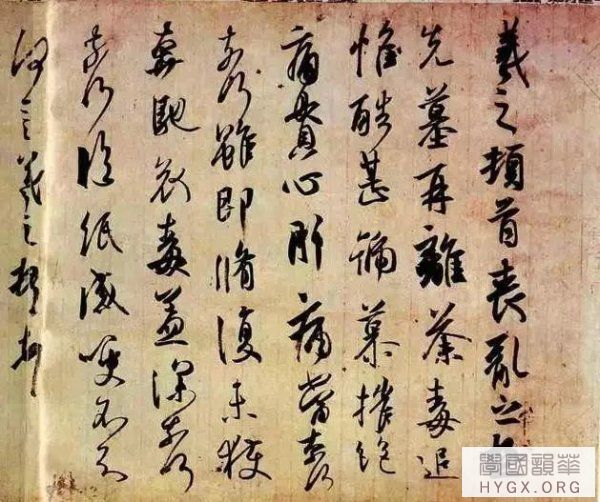 羲之頓首喪亂之極
先墓再離荼毒追
惟酷甚號慕摧絕
痛貫心肝痛當奈何
奈何雖即脩復未獲
奔馳哀毒益深奈何
奈何臨紙感哽不知
何言羲之頓首頓首
華韻國學
HYGX.ORG